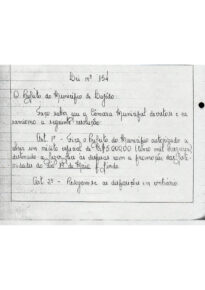 Lei nº 154
O Prefeito do Município de
Faço saber que a Câmara Municipal decretou e eu
sanciono a seguinte resolução:
Art. 1º - Fica o Prefeito do Município autorizado a
abrir um crédito especial de
destinado a as despesas com a promoção da festa
do 1º de Maio
Art. 2º - Revogam-se as disposições em contrário